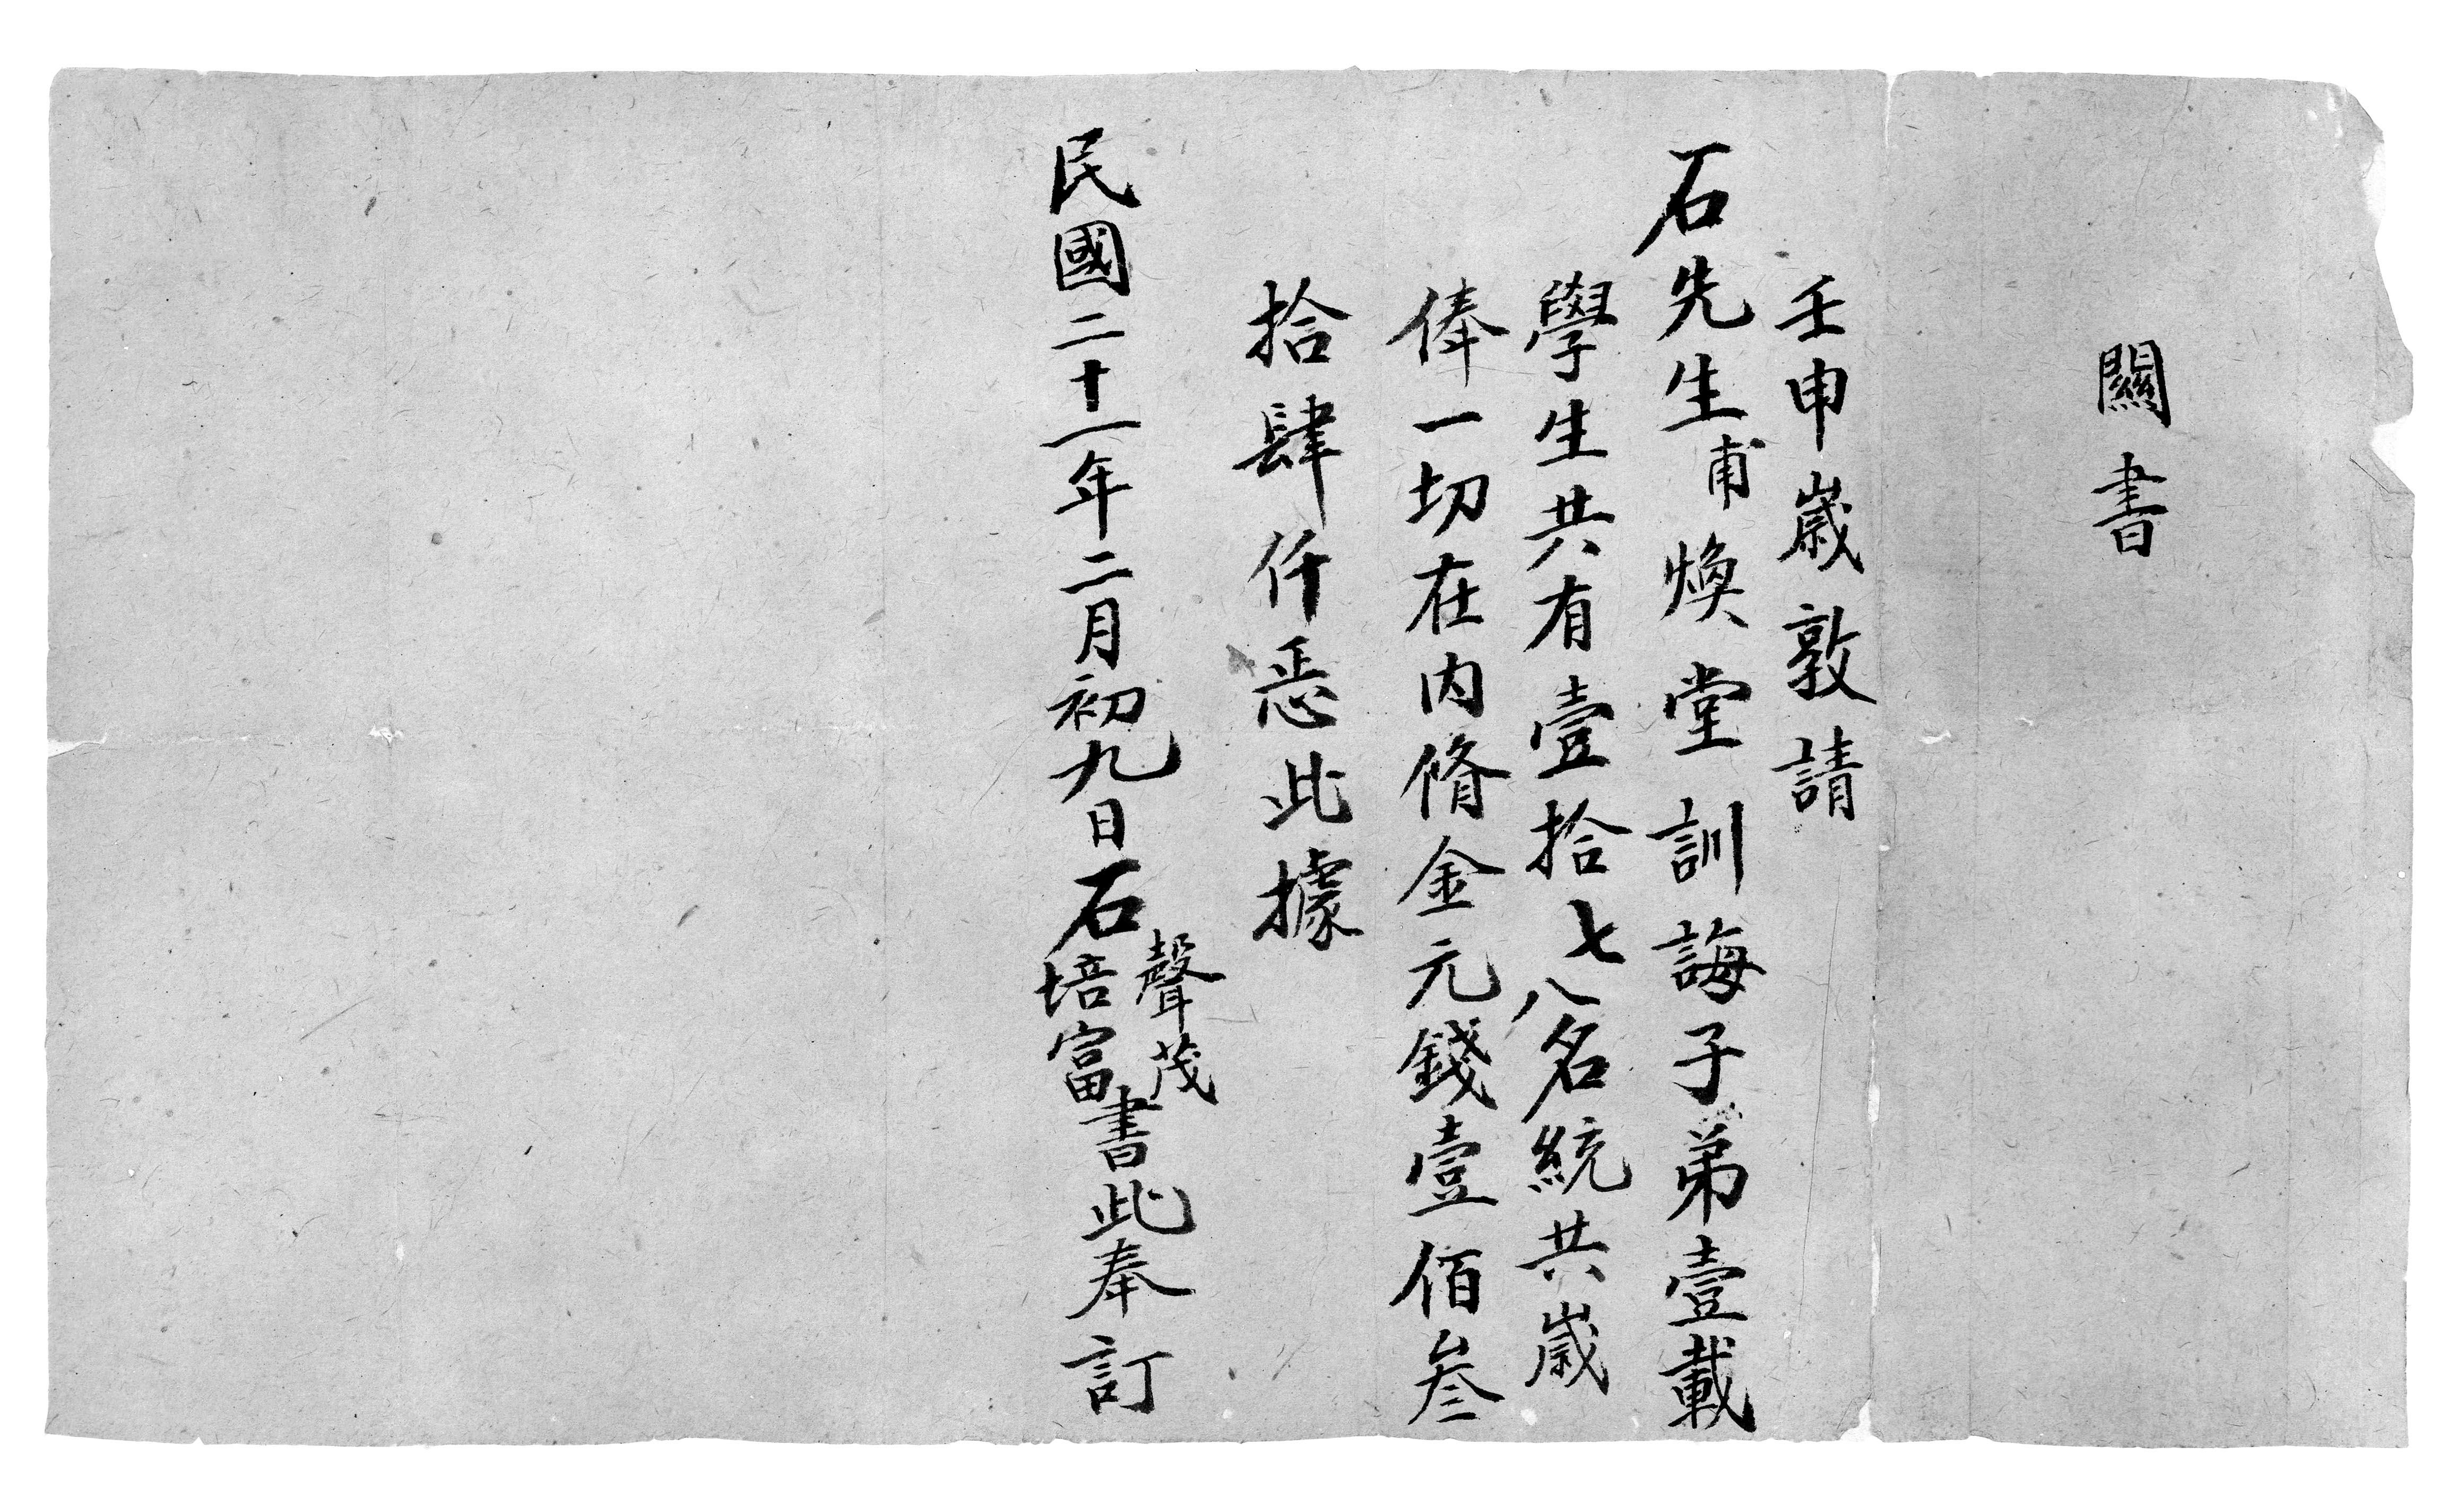 關書
壬申歲敦請
石先生甫煥堂訓誨子弟壹載
學生共有壹拾七八名統共歲
俸一切在内脩金元錢壹佰叁
拾肆仟恶此據
民國二十一年二月初九日石聲茂培富書此奉訂